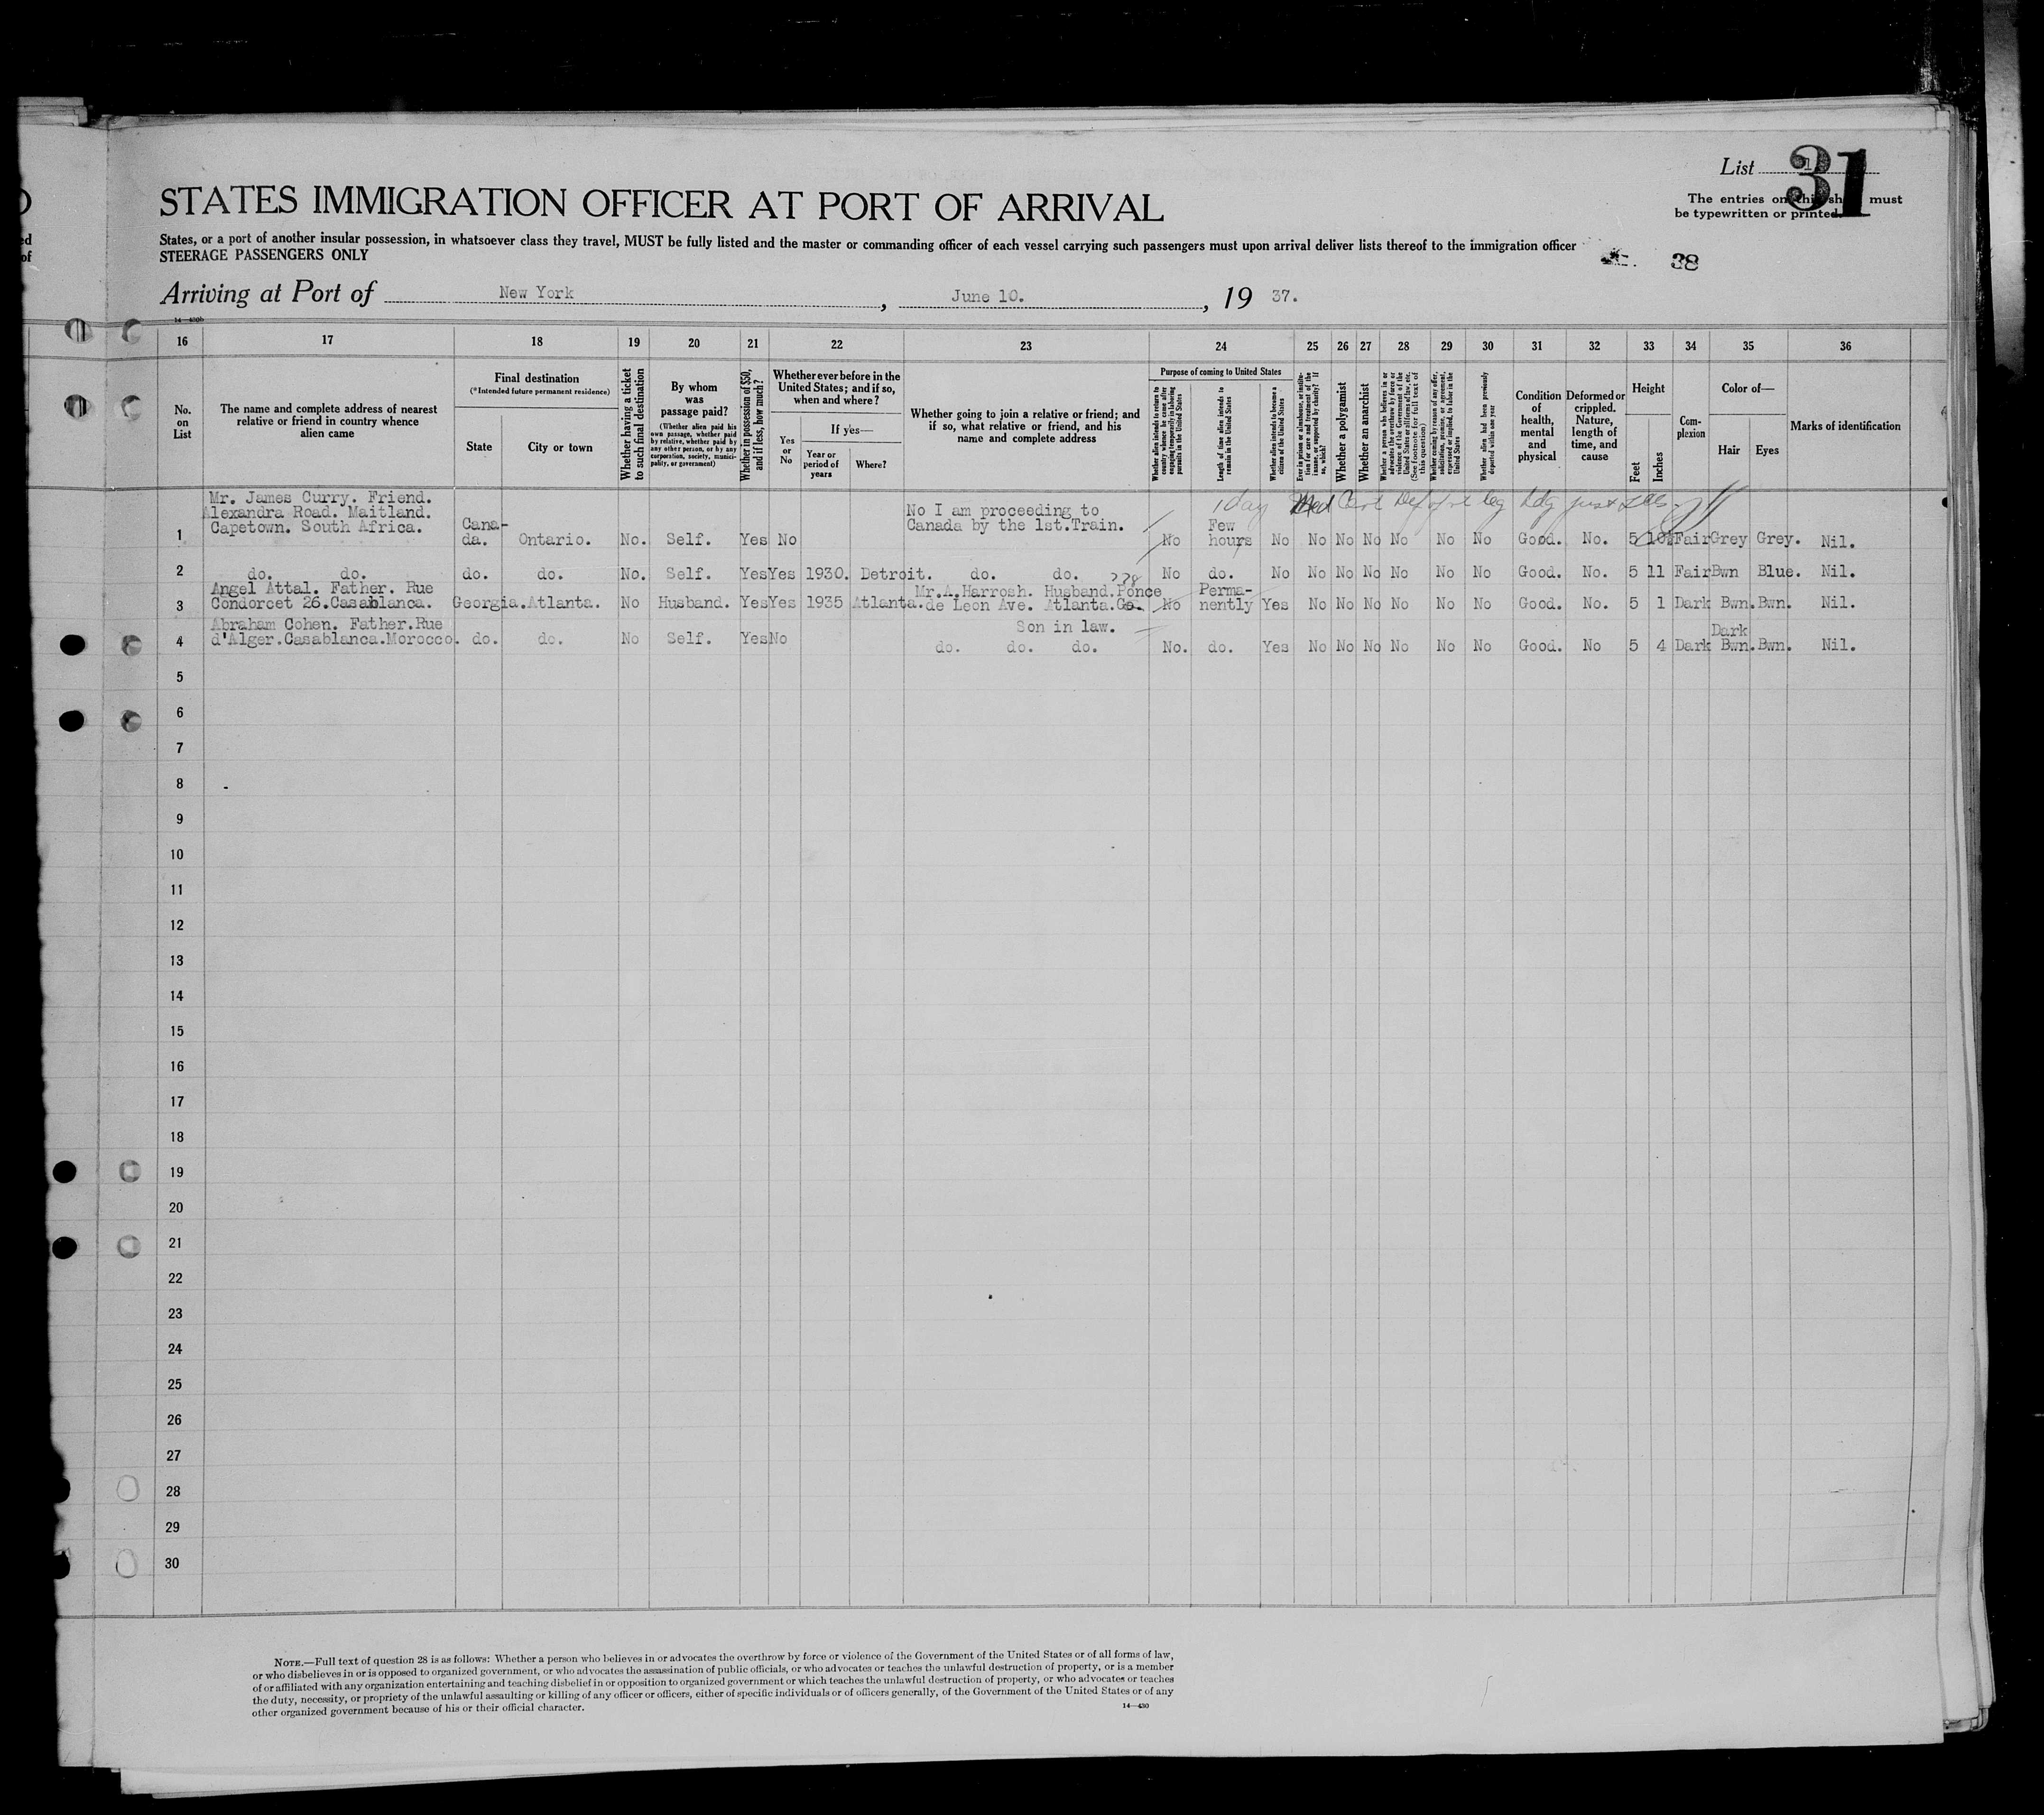 List 1
31
The entries on this sheet must
be typewritten or printed.
STATES IMMIGRATION OFFICER AT PORT OF ARRIVAL
States, or a port of another insular possession, in whatsoever class they travel, MUST be fully listed and the master or commanding officer of each vessel carrying such passengers must upon arrival deliver lists thereof to the immigration officer
STEERAGE PASSENGERS ONLY
38
Arriving at Port of New York, June 10., 19 37.
16 17 18 19 20 21 22 23 24 25 26 27 28 29 30 31 32 33 34 35 36
No. on List
The name and complete address of nearest relative or friend in country whence alien came
Final destination
(*Intended future permanent residence)
State
City or town
Whether having a ticket to such final destination
By whom was passage paid?
(Whether alien paid his own passage, whether paid by relative, whether paid by any other person, or by any corporation, society, municipality, or government)
Whether in possession of $50, and if less, how much?
Whether ever before in the United States; and if so, when and where?
Yes or No
If yes—
Year or period of years
Where?
Whether going to join a relative or friend; and if so, what relative or friend, and his name and complete address
Purpose of coming to United States
Whether alien intends to return to country whence he came after engaging temporarily in laboring pursuits in the United States
Length of time alien intends to remain in the United States
Whether alien intends to become a citizen of the United States
Ever in prison or almshouse, or institution for care and treatment of the insane, or supported by charity? If so, which?
Whether a polygamist
Whether an anarchist
Whether a person who believes in or advocates the overthrow by force or violence of the Government of the United States or all forms of law, etc. (See footnote for full text of this question)
Whether coming by reason of any offer, solicitation, promise, or agreement, expressed or implied, to labor in the United States
Whether alien had been previously deported within one year
Condition of health, mental and physical
Deformed or crippled. Nature, length of time, and cause
Height
Feet
Inches
Complexion
Color of—
Hair
Eyes
Marks of identification
1 day Med Cert
Mr. James Curry. Friend.
Alexandra Road. Maitland.
Capetown. South Africa.
1 Cana-da. Ontario. No. Self. Yes No No I am proceeding to Canada by the 1st.Train. No Few hours No No No No No No No Good. No. 5 10½ Fair Grey Grey. Nil.
2 do. do. do. do. No. Self. Yes Yes 1930. Detroit. do. do. No do. No No No No No No No Good. No. 5 11 Fair Bwn Blue. Nil.
778
Angel Attal. Father. Rue
3 Condorcet 26.Casablanca. Georgia. Atlanta. No Husband. Yes Yes 1935 Atlanta. Mr.A.Harrosh. Husband.Ponce de Leon Ave. Atlanta.Ga. No Perma-nently Yes No No No No No No Good. No. 5 1 Dark Bwn. Bwn. Nil.
Abraham Cohen. Father.Rue
4 d'Alger.Casablanca.Morocco. do. do. No Self. Yes No Son in law. do. do. do. No. do. Yes No No No No No No Good. No 5 4 Dark Dark Bwn. Bwn. Nil.
5
6
7
8
9
10
11
12
13
14
15
16
17
18
19
20
21
22
23
24
25
26
27
28
29
30
NOTE.—Full text of question 28 is as follows: Whether a person who believes in or advocates the overthrow by force or violence of the Government of the United States or of all forms of law,
or who disbelieves in or is opposed to organized government, or who advocates the assassination of public officials, or who advocates or teaches the unlawful destruction of property, or is a member
of or affiliated with any organization entertaining and teaching disbelief in or opposition to organized government or which teaches the unlawful destruction of property, or who advocates or teaches
the duty, necessity, or propriety of the unlawful assaulting or killing of any officer or officers, either of specific individuals or of officers generally, of the Government of the United States or of any
other organized government because of his or their official character.
14—430